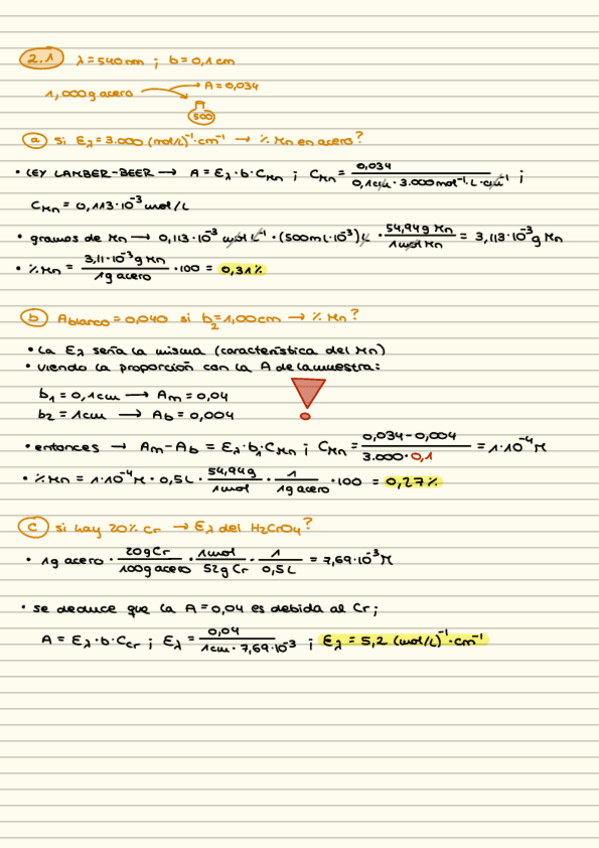 2.1 λ=540nm ; b=0,1cm
1,000g acero → A=0,034
500
a Si Eλ=3.000 (mol/L)⁻¹·cm⁻¹ → % Mn en acero?
• LEY LAMBER-BEER → A = Eλ·b·CMn ; CMn = 0,034 / 0,1cm · 3.000mol⁻¹·L·cm⁻¹ ;
CMn = 0,113·10⁻³ mol/L
• gramos de Mn → 0,113·10⁻³ mol L⁻¹ · (500ml·10⁻³)L · 54,94g Mn / 1mol Mn = 3,113·10⁻³ g Mn
• %Mn = 3,11·10⁻³ g Mn / 1g acero · 100 = 0,31%
b Ablanco = 0,040 si b₂=1,00cm → % Mn?
• La Eλ sería la misma (característica del Mn)
• viendo la proporción con la A de la muestra:
b₁ = 0,1cm → Am = 0,04
b₂ = 1cm → Ab = 0,004
• entonces → Am-Ab = Eλ·b₁·CMn ; CMn = 0,034-0,004 / 3.000·0,1 = 1·10⁻⁴ M
• %Mn = 1·10⁻⁴ M · 0,5L · 54,94g / 1mol · 1 / 1g acero · 100 = 0,27%
c si hay 20% Cr → Eλ del H₂CrO₄?
• 1g acero · 20g Cr / 100g acero · 1mol / 52g Cr · 1 / 0,5L = 7,69·10⁻³ M
• se deduce que la A=0,04 es debida al Cr;
A = Eλ·b·Ccr ; Eλ = 0,04 / 1cm · 7,69·10⁻³ ; Eλ = 5,2 (mol/L)⁻¹·cm⁻¹